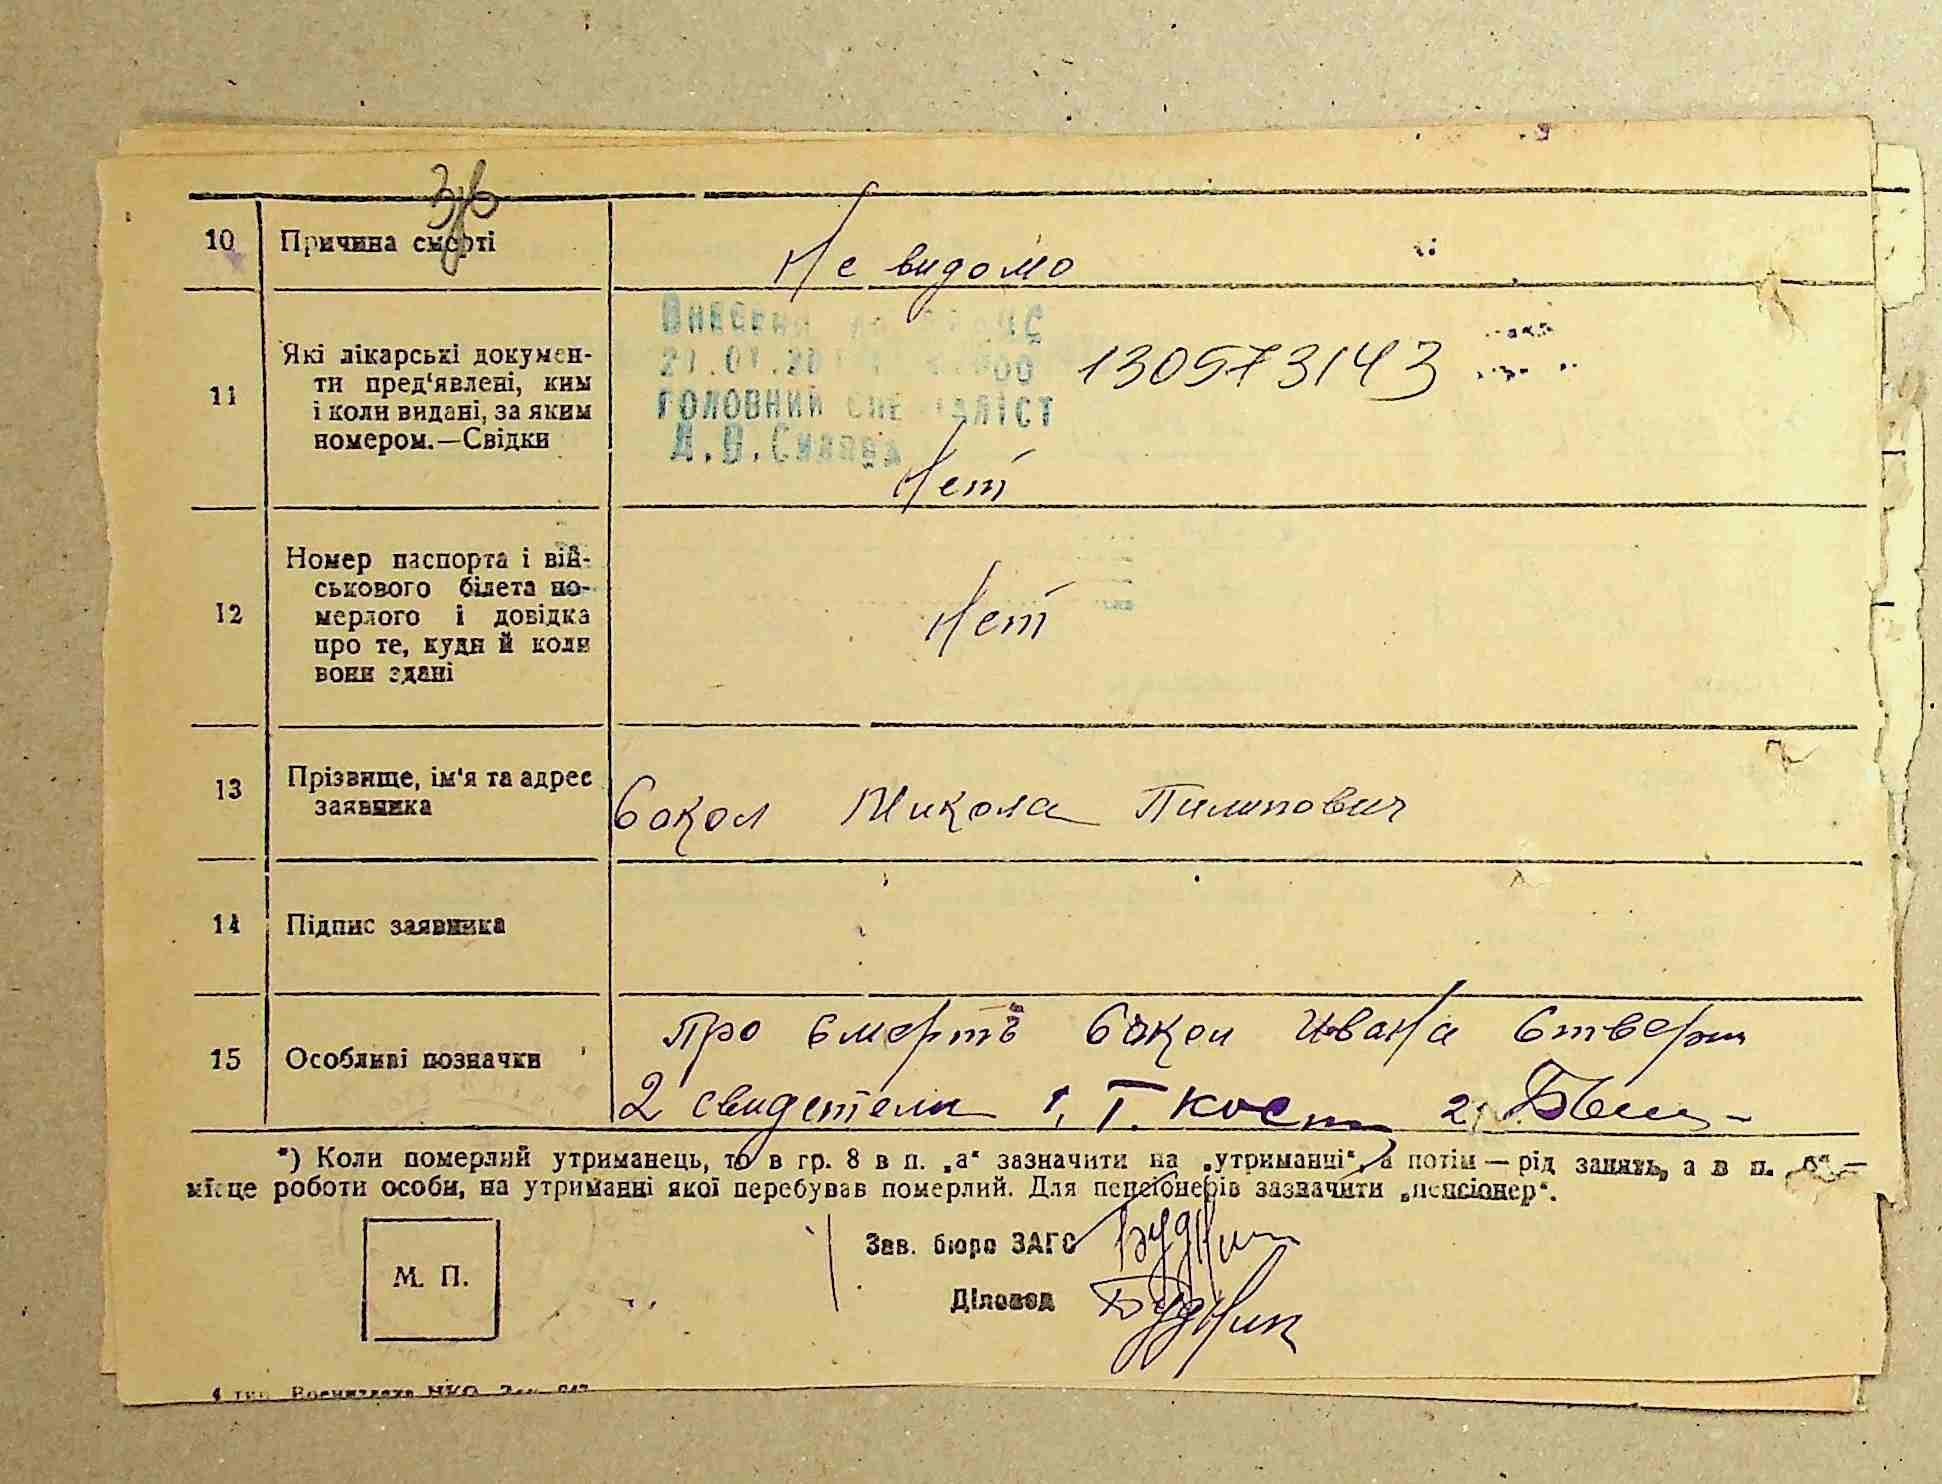 10 Причина смерті
Не видомо
11 Які лікарські докумен-
ти пред'явлені, ким
і коли видані, за яким
номером.—Свідки
ГОЛОВНИЙ СПЕЦІАЛІСТ
130573143
Нет
12 Номер паспорта і вій-
ськового білета по-
мерлого і довідка
про те, куди й коли
вони здані
Нет
13 Прізвище, ім'я та адрес
заявника
Сокол Микола Пилипович
14 Підпис заявника
15 Особливі позначки
Про смерть Сокол Ивана Ствержи
2 свидетели 1, Г. Кост 2,
*) Коли померлий утриманець, то в гр. 8 в п. „а“ зазначити на „утриманні“, а потім — рід занять, а в п. —
місце роботи особи, на утриманні якої перебував померлий. Для пенсіонерів зазначити „пенсіонер“.
М. П.
Зав. бюро ЗАГС Будник
Діловод Будник